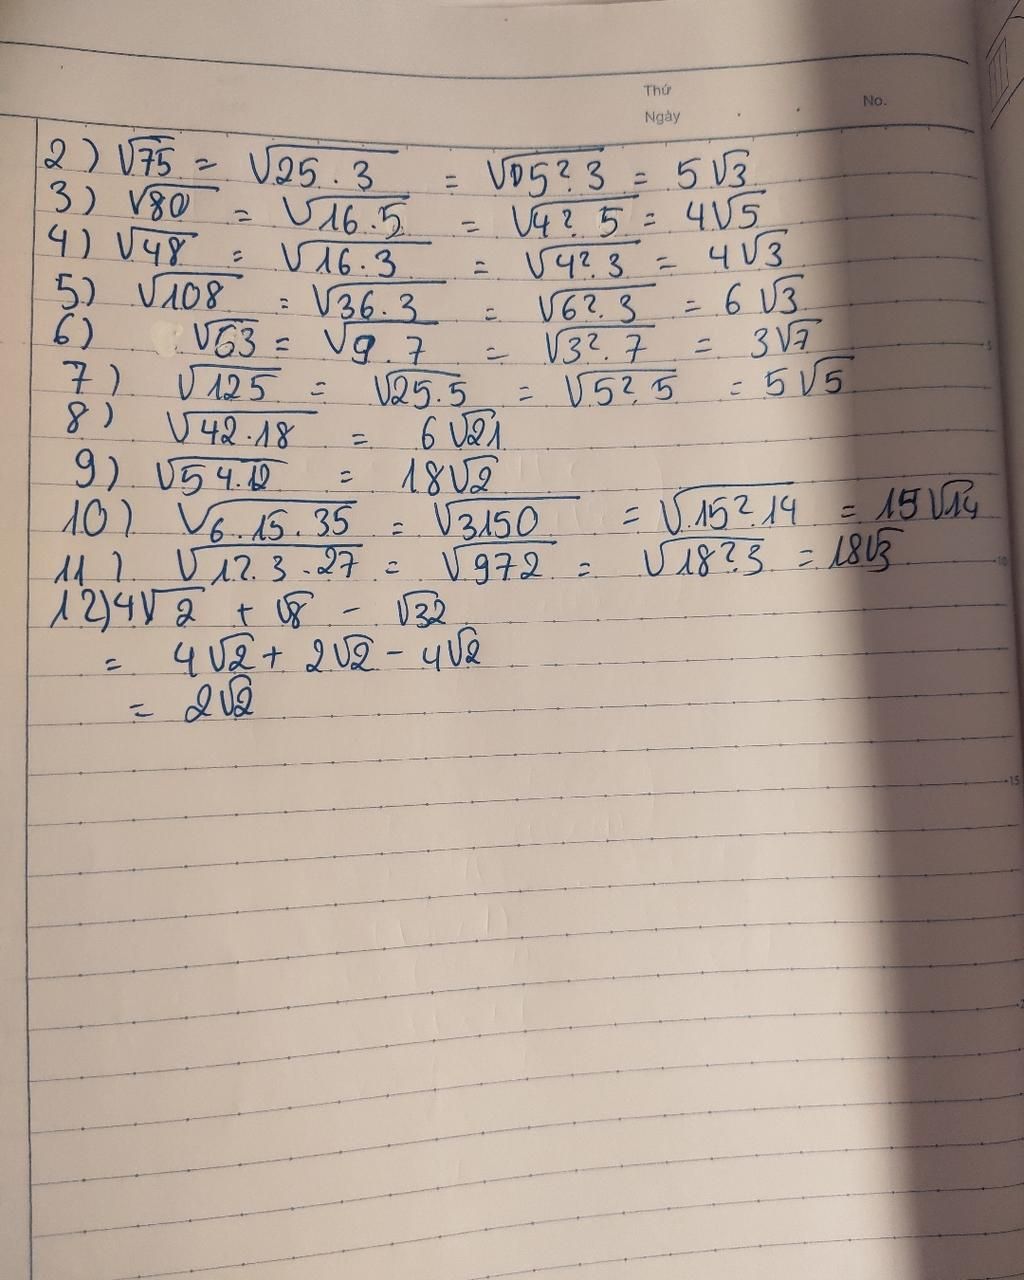 Thứ
Ngày
No.
2) √75 = √25.3 = √5².3 = 5√3
3) √80 = √16.5 = √4².5 = 4√5
4) √48 = √16.3 = √4².3 = 4√3
5) √108 = √36.3 = √6².3 = 6√3
6) √63 = √9.7 = √3².7 = 3√7
7) √125 = √25.5 = √5².5 = 5√5
8) √42.18 = 6√21
9) √54.12 = 18√2
10) √6.15.35 = √3150 = √15².14 = 15√14
11) √12.3.27 = √972 = √18².3 = 18√3
12) 4√2 + √8 - √32
= 4√2 + 2√2 - 4√2
= 2√2
5
10
15